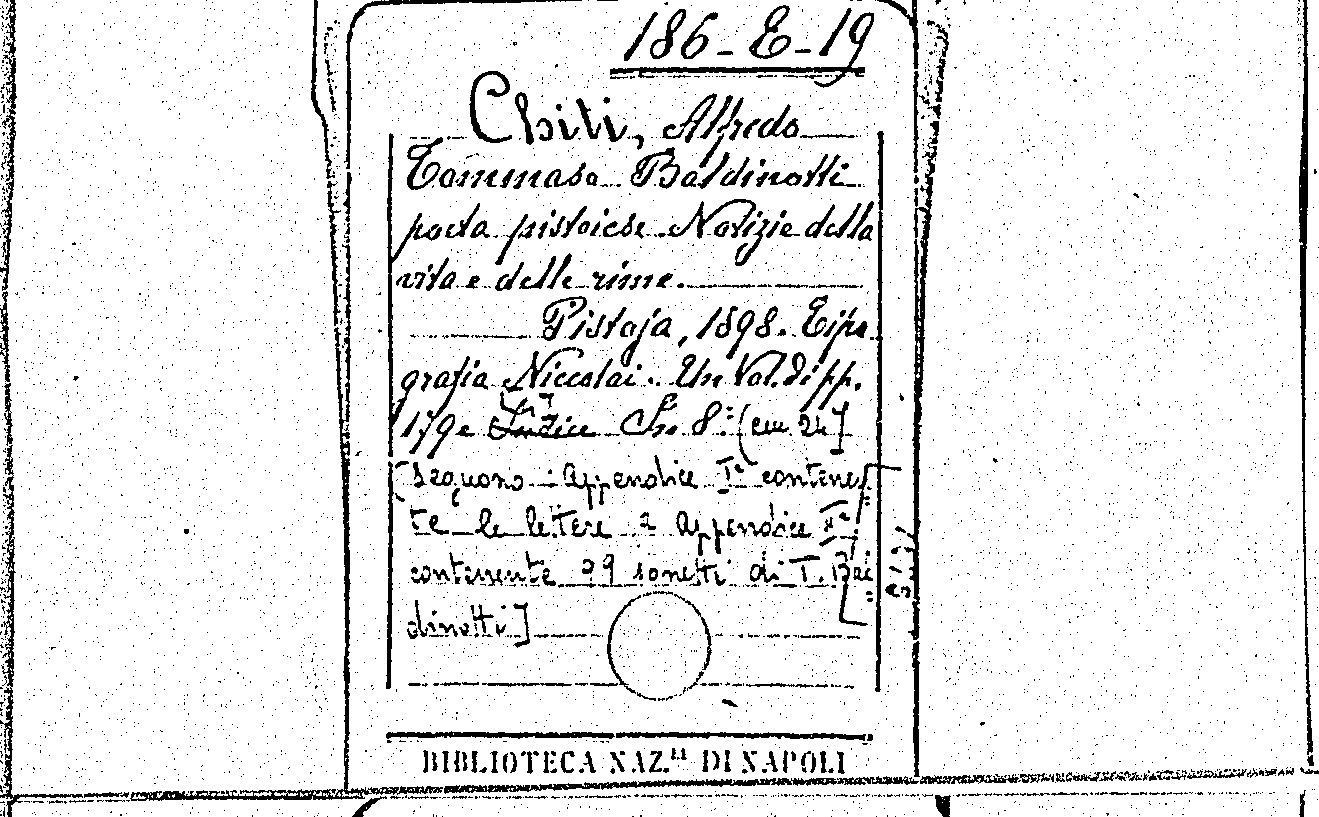 186-E-19
Chiti, Alfredo
Tommaso Baldinotti
poeta pistoiese. Notizie della
vita e delle rime.
Pistoja, 1898. Tipo
grafia Niccolai. Un Vol. di pp.
179 e Indice In 8° (cm 24]
[Seguono: Appendice Iª contenen
te le lettere e Appendice IIª
contenente 29 sonetti di T. Bal
dinotti]
BIBLIOTECA NAZ.LE DI NAPOLI